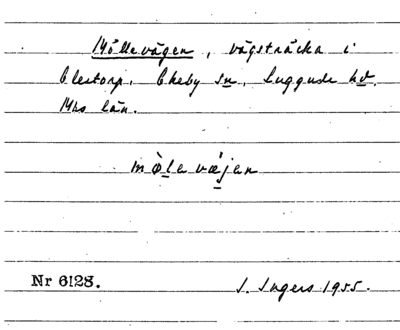 Möllevägen, vägsträcka i
Clestorp, Ekeby sn, Luggude hd.
Mhs län.
mølevæjen
Nr 6128.
I. Ingers 1955.